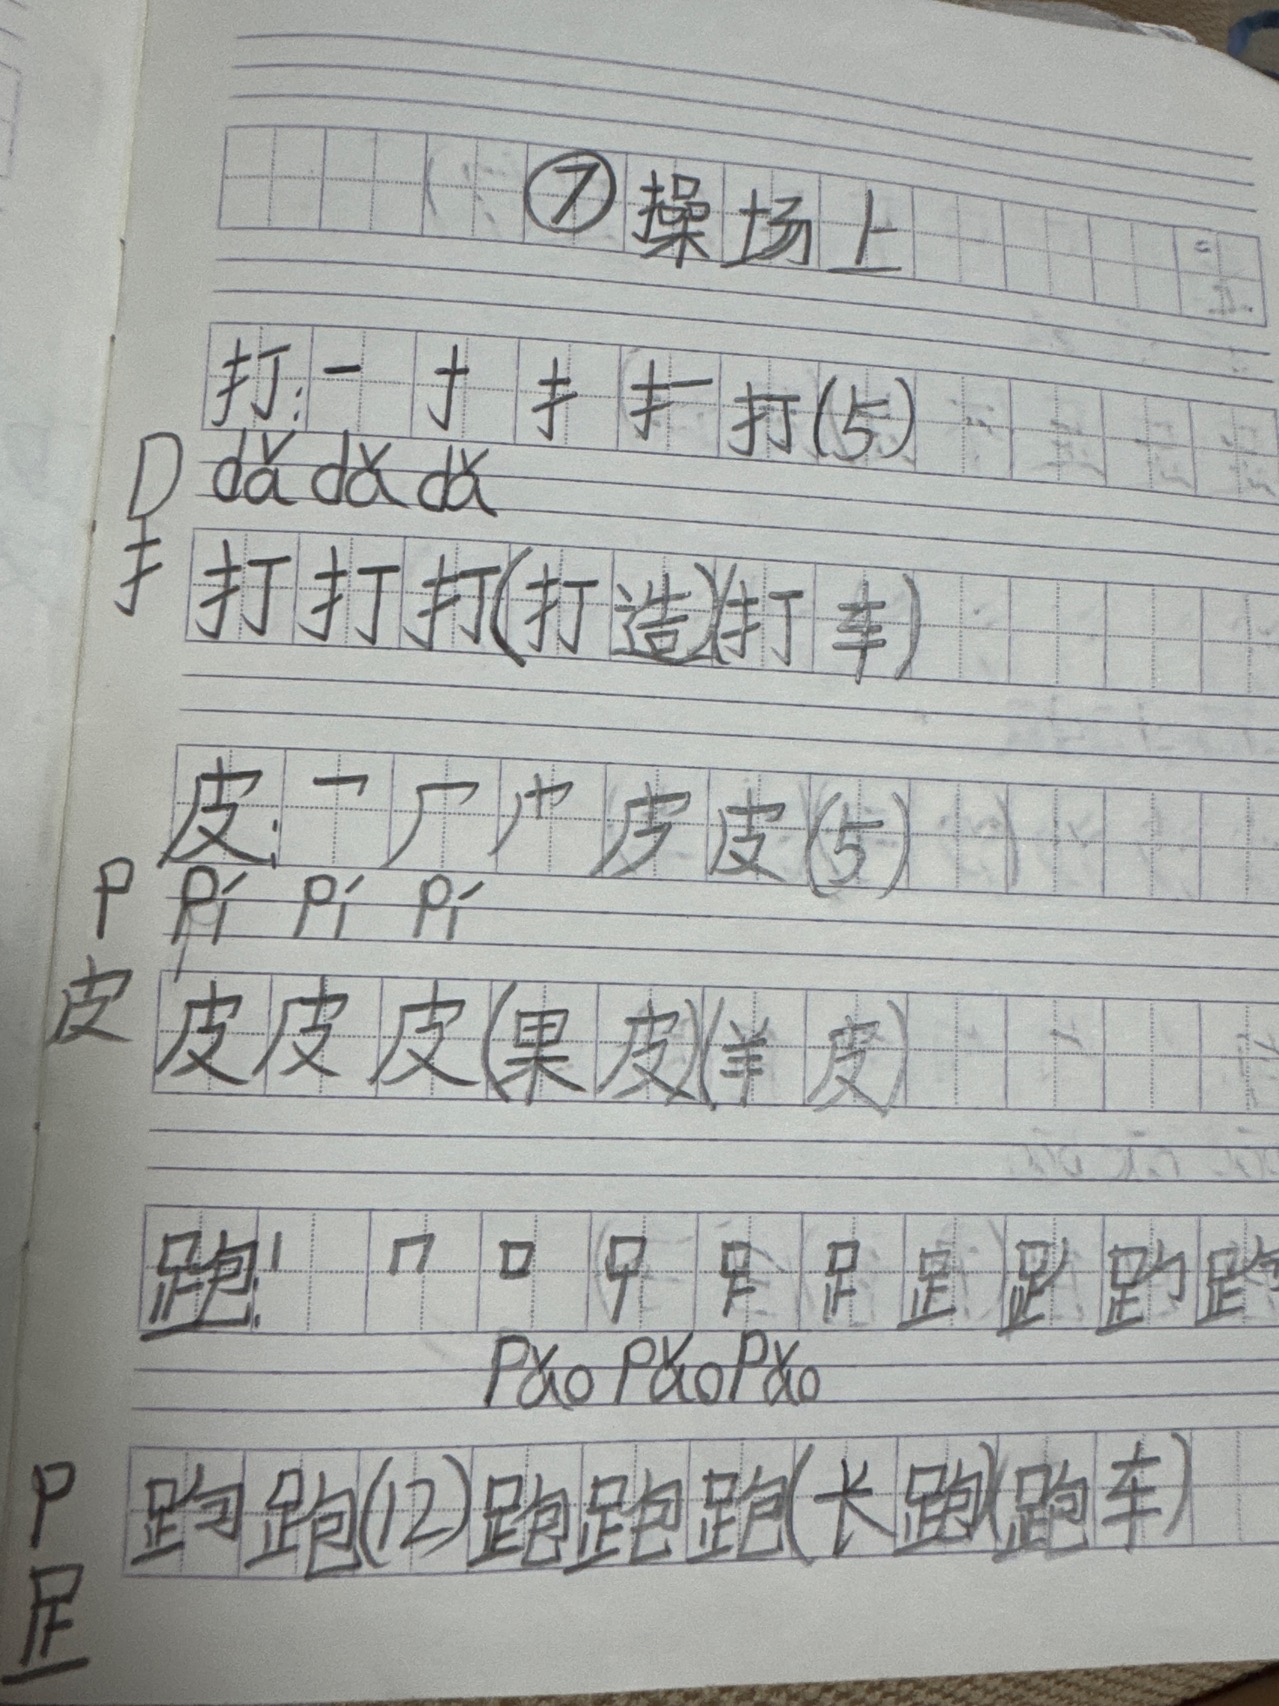 ⑦操场上
打:一 十 扌 扌一 打(5)
D dǎ dǎ dǎ
扌 打打打(打造)(打车)
皮:乛 厂 皮(5)
P pí pí pí
皮 皮皮皮(果皮)(羊皮)
跑:丨 冂 口
pǎo pǎo pǎo
P 跑(12)跑跑跑(长跑)(跑车)
𧾷